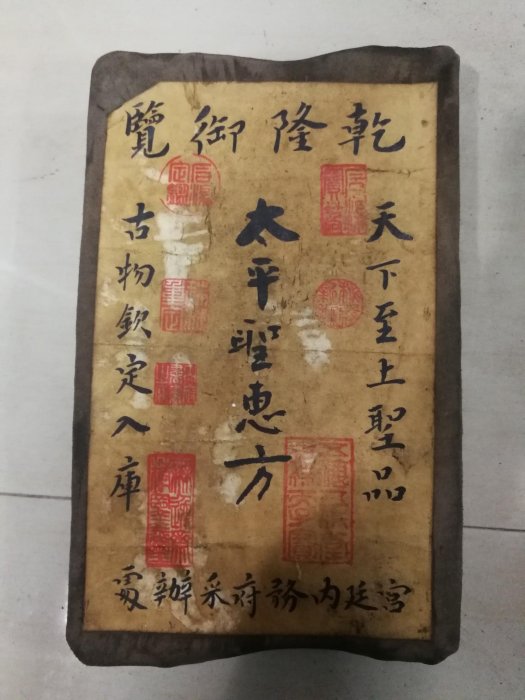 乾隆御覽
天下至上聖品
太平聖恵方
古物欽定入庫
宮廷内務府采辦處